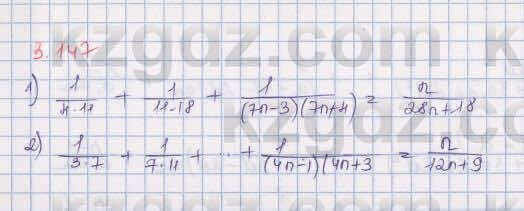 kzgdz.com
3.147
1) 1/(4·11) + 1/(11·18) + 1/((7n-3)(7n+4) = n/(28n+18)
2) 1/(3·7) + 1/(7·11) + ... + 1/((4n-1)(4n+3) = n/(12n+9)